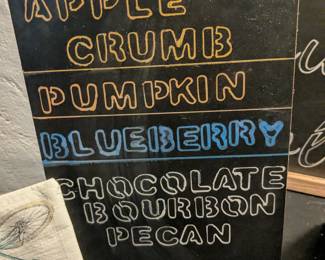 APPLE
CRUMB
PUMPKIN
BLUEBERRY
CHOCOLATE
BOURBON
PECAN